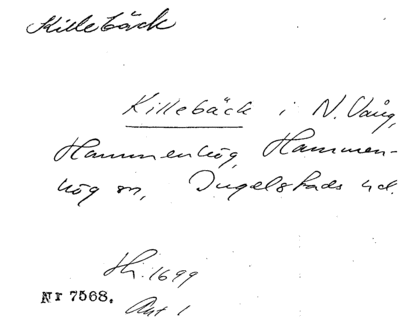 Killebäck
Killebäck i N. Vång,
Hammenhög, Hammen-
hög sn, Ingelstads hd.
Hh. 1699
Nr 7568.
Akt 1